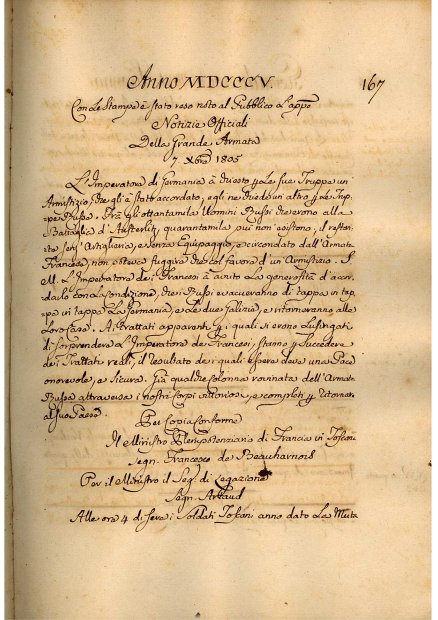 Anno MDCCCV.
167
Con le Stampe è stato reso noto al Pubblico L'appo
Notizie Officiali
Della Grande Armata
7. Xbre 1805
L'Imperatore di Germania à chiesto p le sue Truppe un'
Armistizio, che gli è stato accordato, egli ne chiede un altro p le Trup,
pe Russe. Frà gli ottantamila Uomini Russi che erono alla
Battaglia d'Austerlitz quarantamila più non esistono, il resto
è senz'Artiglieria, e senza Equipaggio, e circondato dall'Armata
Francese, non poteva fuggire che col favore d'un Armistizio. S.
M. L'Imperatore dei Francesi à avuto la generosità d'accor,
darlo con la condizione, che i Russi evacueranno di tappa in tap,
pa in tappa la Germania, e le due Galizie, e ritorneranno alle
Loro Case. Ai Trattati apparenti p i quali si erono lusingati
di sorprendere L'Imperatore de Francesi, stanno p succedere
dei Trattati reali, il resultato dei quali essere deve una Pace
onorevole, e sicura. Già qualche colonna rovinata dell'Armata
Russa attraversa i nostri Corpi vittoriosi, e completi p ritornare
al suo Paese.
Per Copia Conforme
Il Ministro Plenipotenziario di Francia in Toscana
Segn. Francesco de Beauharnois
Per il Ministro il Seg. di Legazione
Segn. Artaud
Alle ore 4 di sera i Soldati Toscani anno dato la Muta